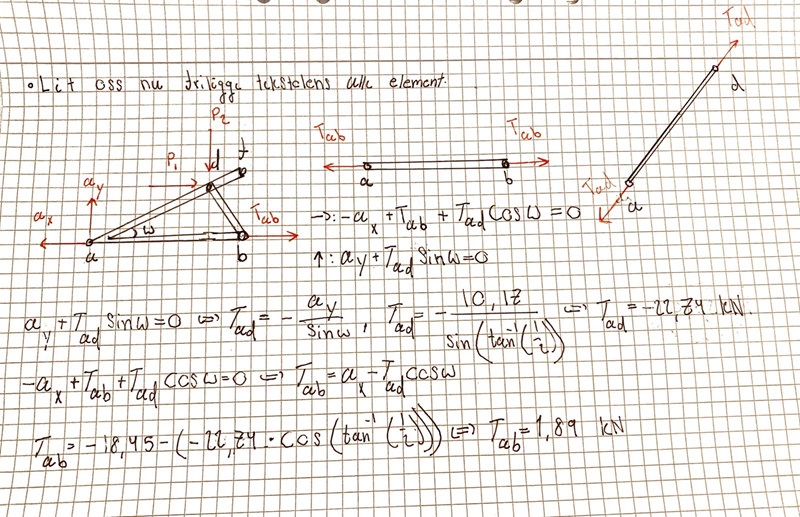 • Lit oss nu friligge tekstelens alle element.
P₂
P₁ d f
a_y
a_x
T_ab
ω
a b
T_ab T_ab
a b
T_ad
d
T_ad
a
→: -a_x + T_ab + T_ad cos ω = 0
↑: a_y + T_ad sin ω = 0
a_y + T_ad sin ω = 0 ⇔ T_ad = - a_y / sin ω, T_ad = - 10,17 / sin(tan⁻¹(1/2)) ⇔ T_ad = -22,74 kN.
-a_x + T_ab + T_ad cos ω = 0 ⇔ T_ab = a_x - T_ad cos ω
T_ab = -18,45 - (-22,74 · cos(tan⁻¹(1/2))) ⇔ T_ab = 1,89 kN